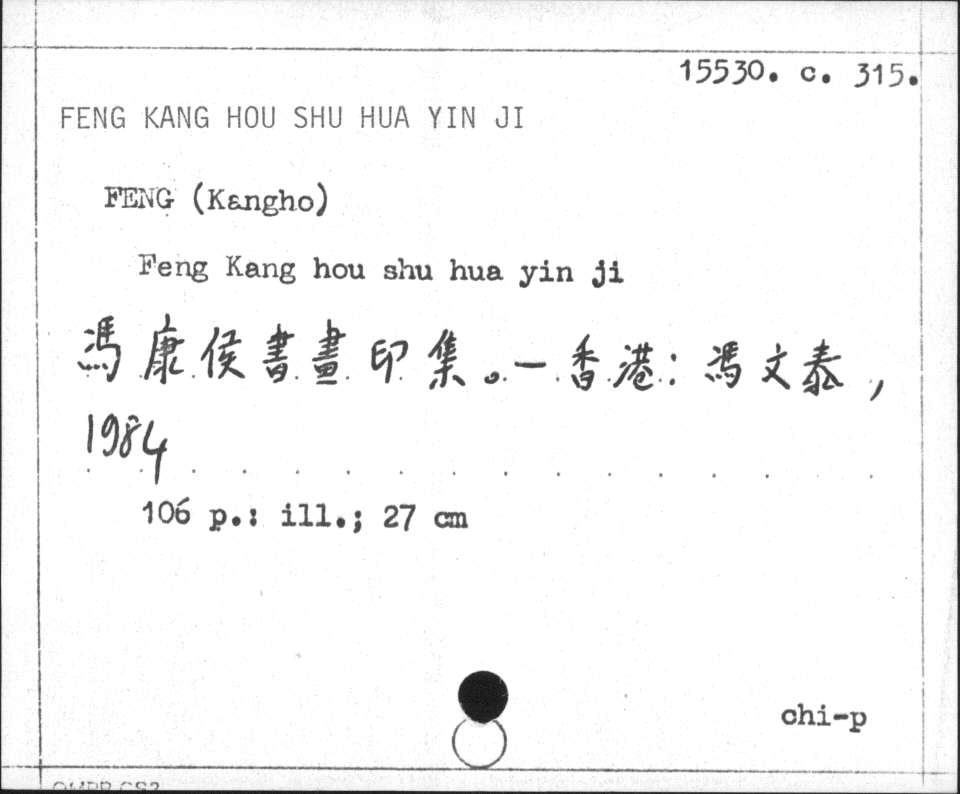 15530. c. 315.
FENG KANG HOU SHU HUA YIN JI
FENG (Kangho)
Feng Kang hou shu hua yin ji
馮康侯書畫印集。— 香港: 馮文泰,
1984
106 p.: ill.; 27 cm
chi-p